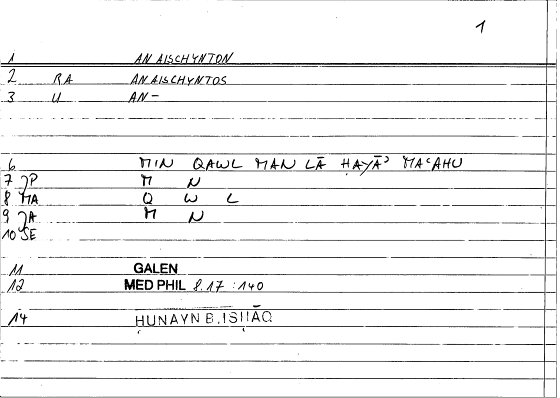 1
1 ANAISCHYNTON
2 RA ANAISCHYNTOS
3 U AN-
6 MIN QAWL MAN LĀ ḤAYĀʾ MAʿAHU
7 JP M N
8 MA Q W L
9 JA M N
10 SE
11 GALEN
12 MED PHIL 8.17 :140
14 ḤUNAYN B.ISḤĀQ